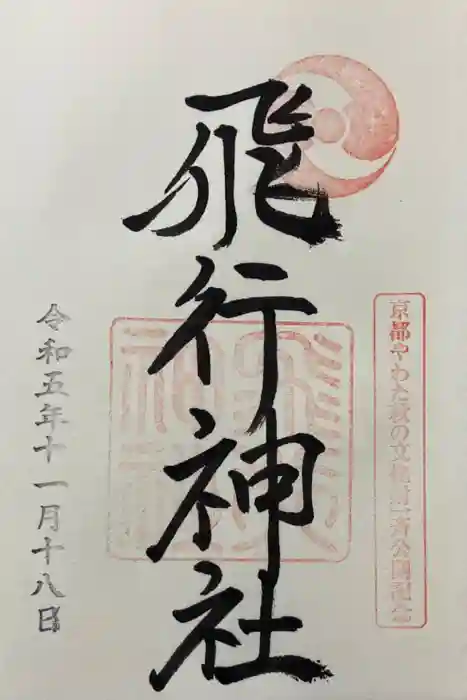 京都やわた秋の文化財一斉公開記念
飛行神社
令和五年十一月十八日